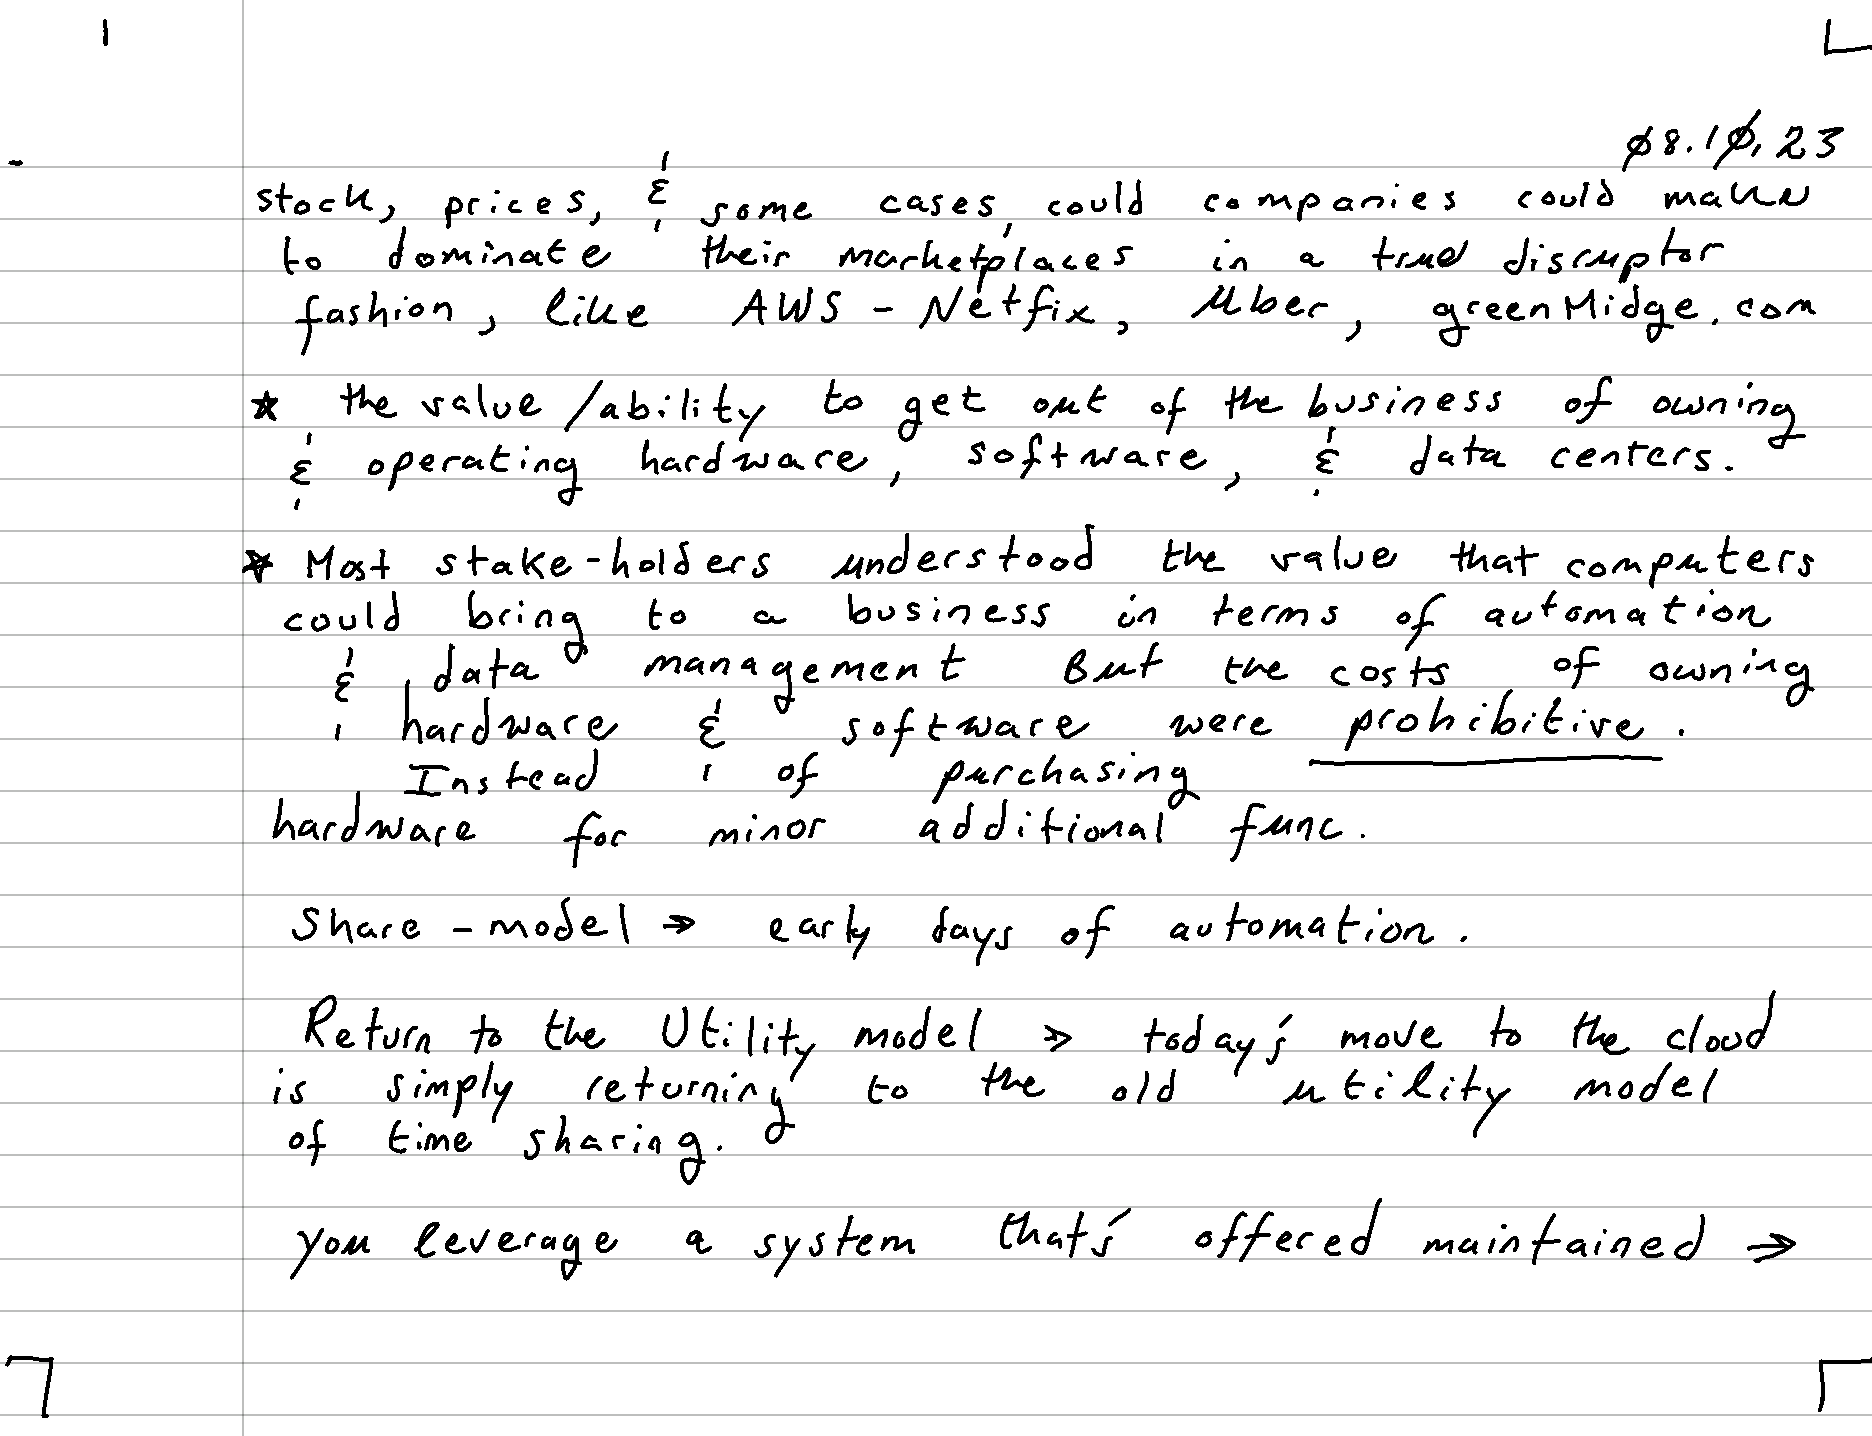 08.10.23
stock, prices, & some cases, could companies could make
to dominate their marketplaces in a true disruptor
fashion, like AWS - Netfix, Uber, greenMidge.com
* the value /ability to get out of the business of owning
& operating hardware, software, & data centers.
* Most stake-holders understood the value that computers
could bring to a business in terms of automation
& data management But the costs of owning
hardware & software were prohibitive.
Instead of purchasing
hardware for minor additional func.
Share - model → early days of automation.
Return to the Utility model → today's move to the cloud
is simply returning to the old utility model
of time sharing.
you leverage a system that's offered maintained →